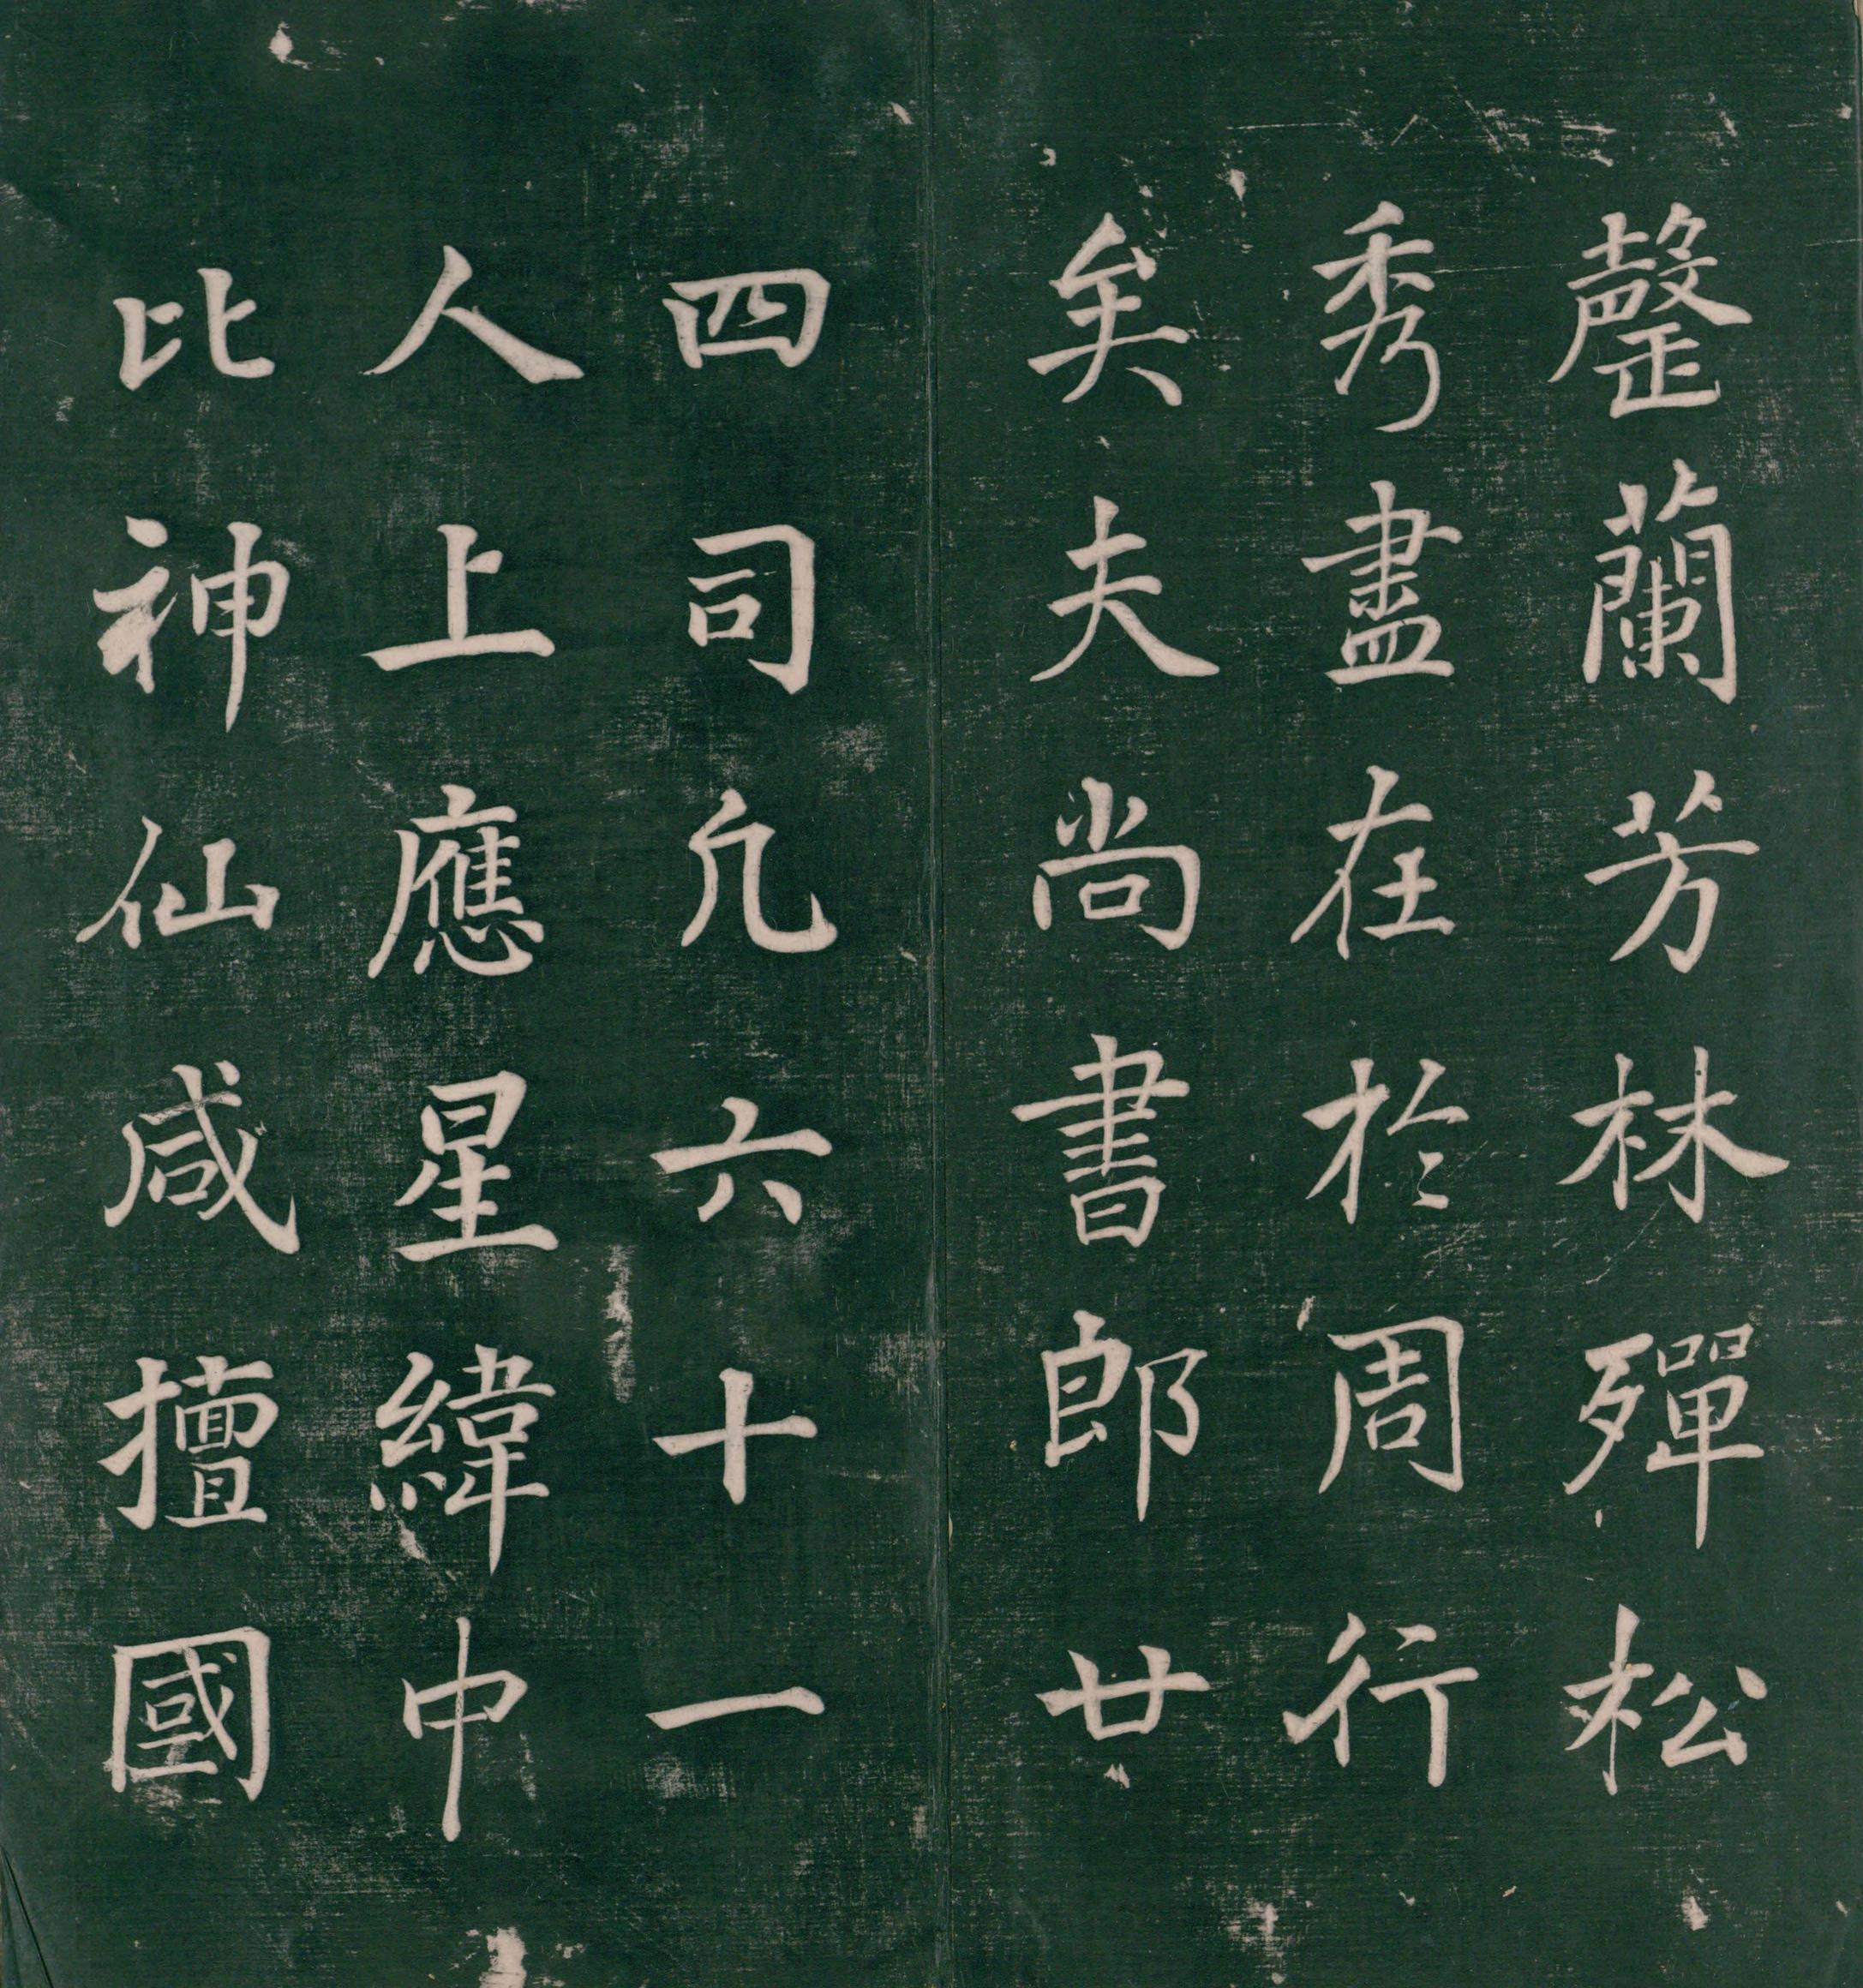 罄蘭芳林殫松
秀盡在於周行
矣夫尚書郎廿
四司凡六十一
人上應星緯中
比神仙咸擅國